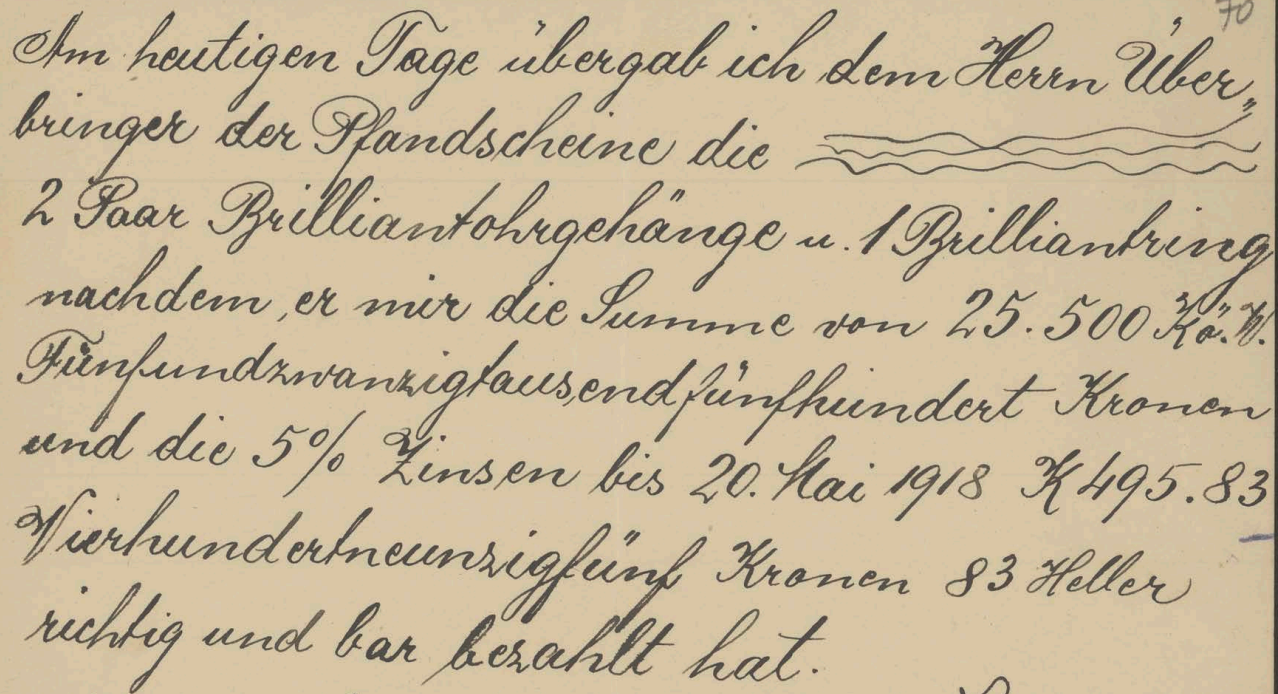 70
Am heutigen Tage übergab ich dem Herrn Über„
bringer der Pfandscheine die
2 Paar Brilliantohrgehänge u. 1 Brilliantring
nachdem, er mir die Summe von 25.500 Kö. W.
Fünfundzwanzigtausendfünfhundert Kronen
und die 5% Zinsen bis 20. Mai 1918 K 495.83
Vierhundertneunzigfünf Kronen 83 Heller
richtig und bar bezahlt hat.